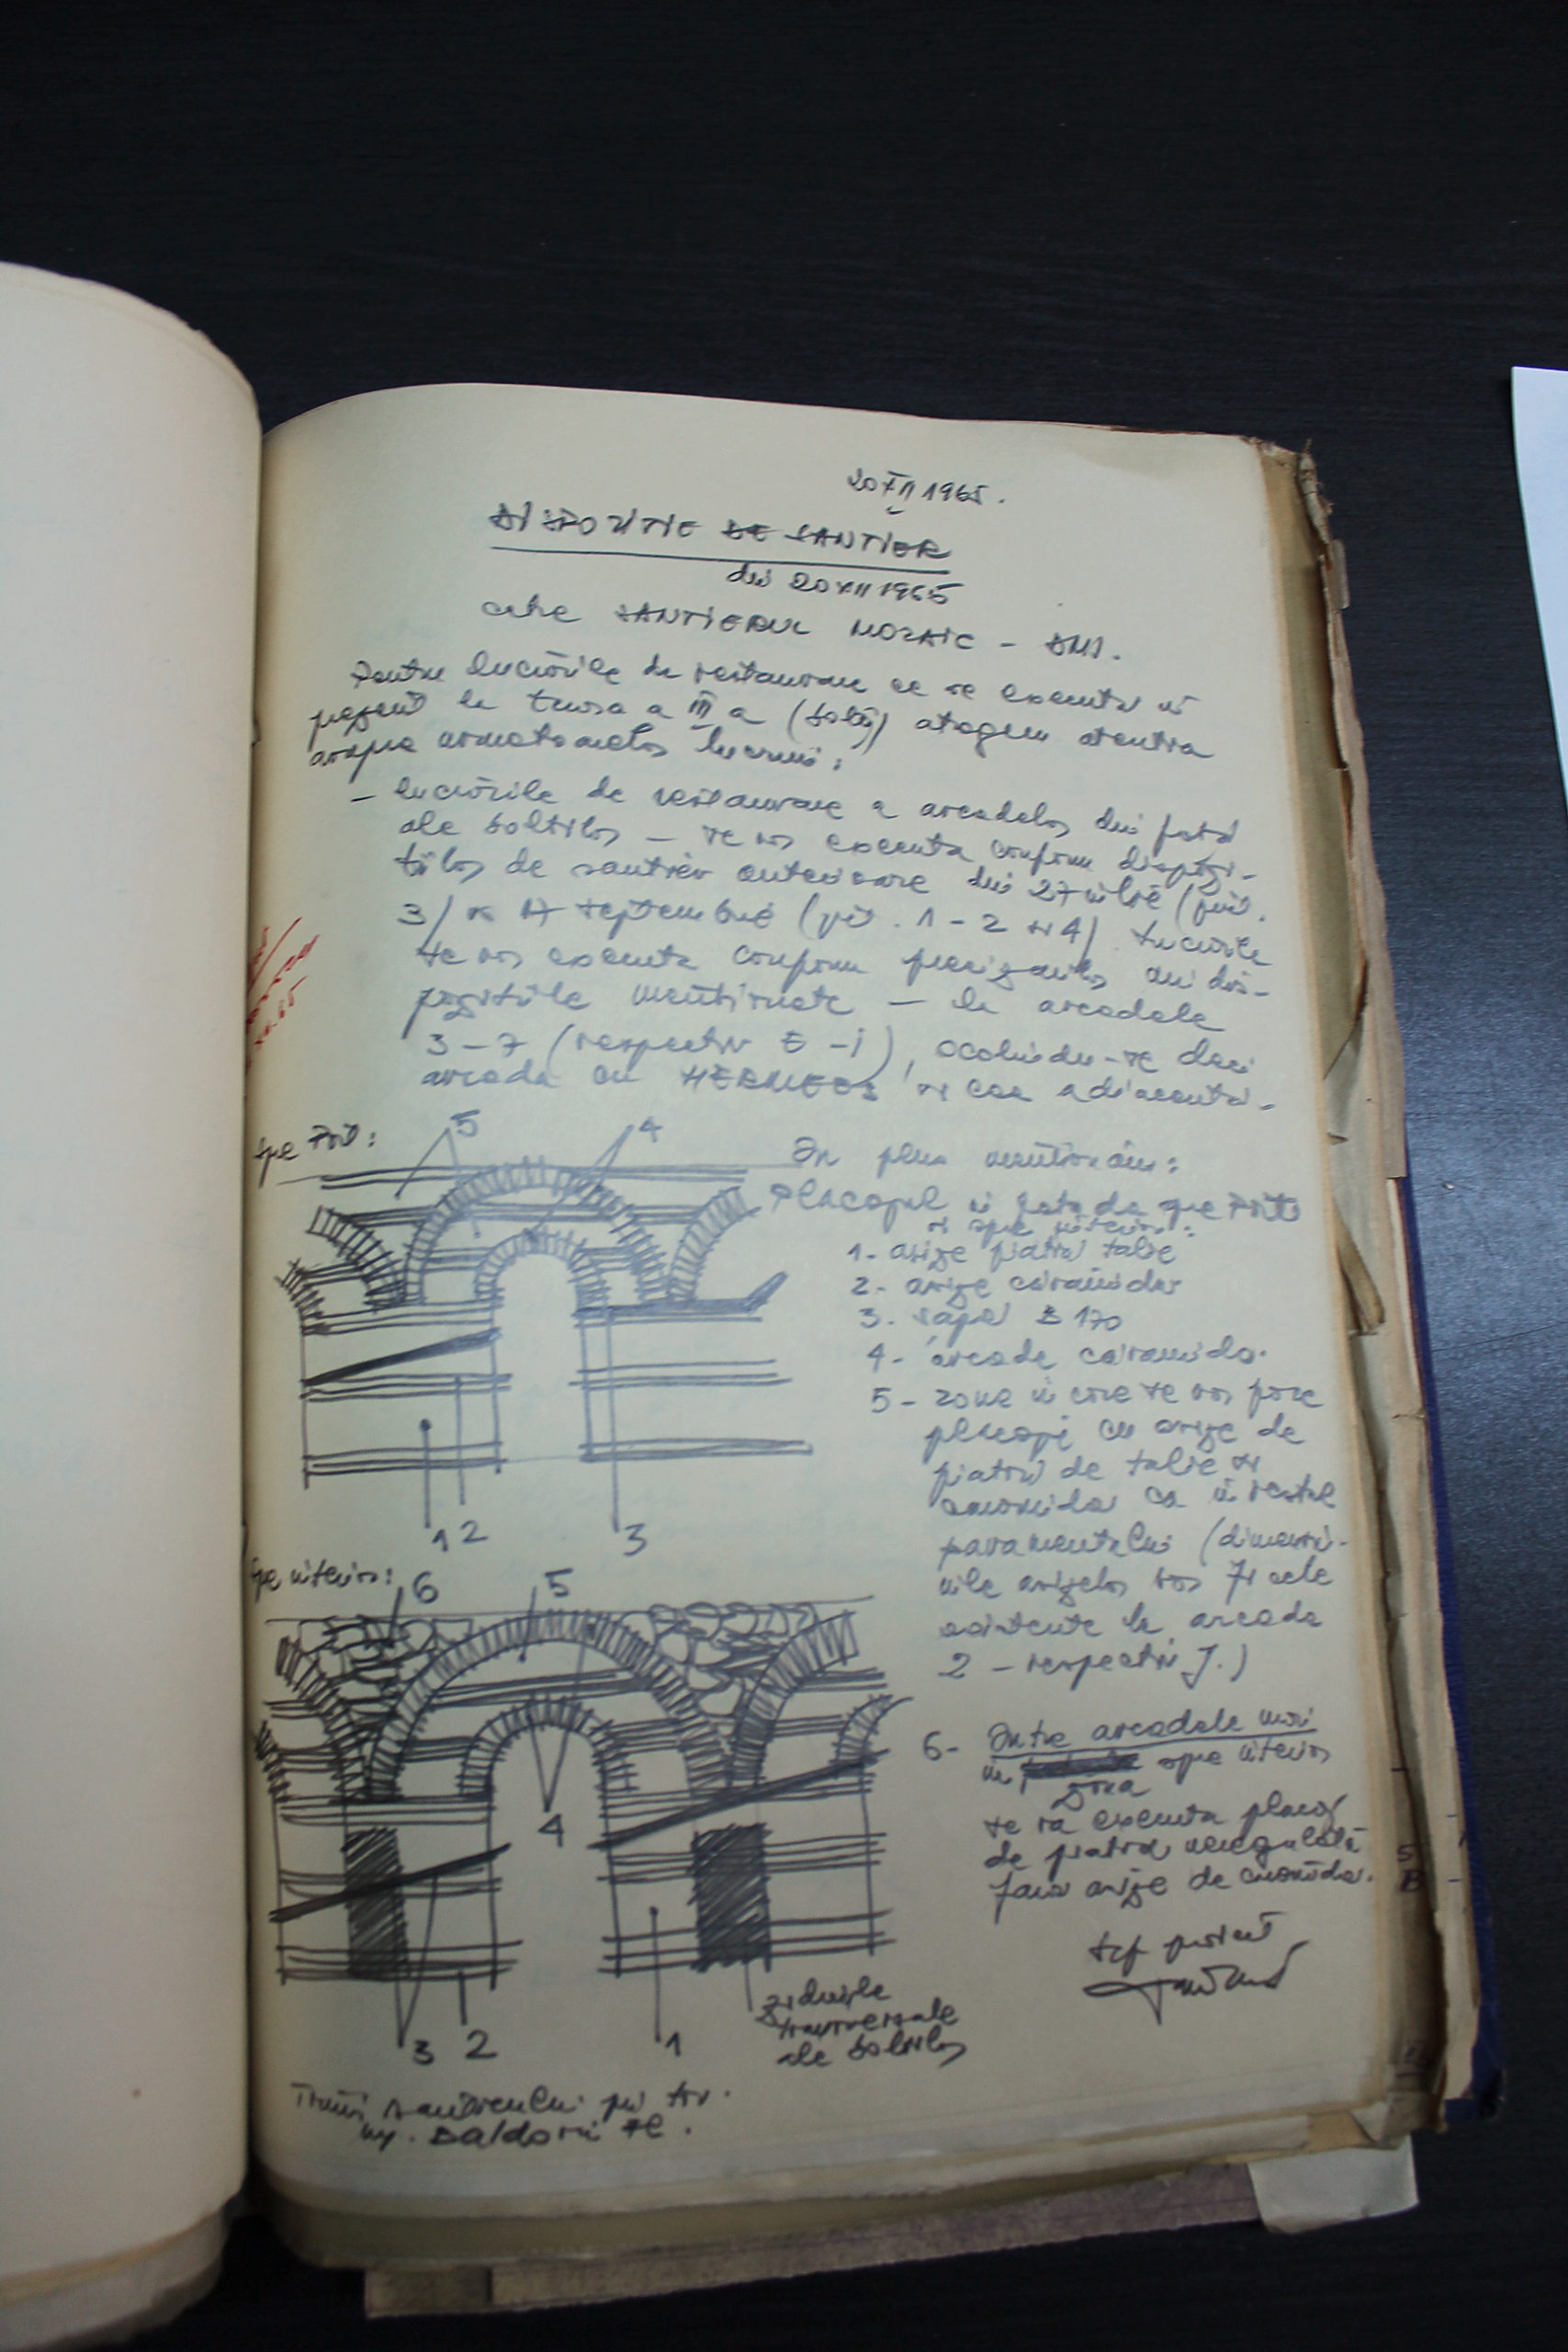 20 XII 1965.
DISPOZITIE DE SANTIER
din 20 XII 1965
catre SANTIERUL MOZAIC - DMI.
Pentru lucrările de restaurare ce se executa in
prezent la terasa a III a (bolți) atragem atentia
asupra urmatoarelor lucruri:
- lucrările de restaurare a arcadelor din fata
ale boltilor - se vor executa conform dispozi-
tiilor de santier anterioare din 27 iulie (pct.
3) si 17 septembrie (pct. 1-2 si 4). Lucrarile
se vor executa conform precizarilor din dis-
pozitiile mentionate - la arcadele
3-7 (respectiv E-I), ocolindu-se deci
arcada cu HERMEES si cea adiacenta.
Spe Port:
5 4
In plus mentionăm:
Placajul in fatada spe Port
si spe interior:
1- asize piatra talie
2- asize caramida
3. sapa B 170
4- arcade caramida.
5- zone in care se vor face
placaje cu asize de
piatra de talie si
caramida ca in restul
paramentului (dimensiu-
nile asizelor vor fi cele
existente la arcada
2 - respectiv J.)
1 2 3
Spe interior:
6 5
4
6- Intre arcadele mari
in zona spe interior
se va executa placaj
de piatra neregulată
fara asize de caramida.
sef proiect
zidurile
transversale
ale boltilor
3 2 1
Trans. santierului pri tov.
ing. Baldovin Al.